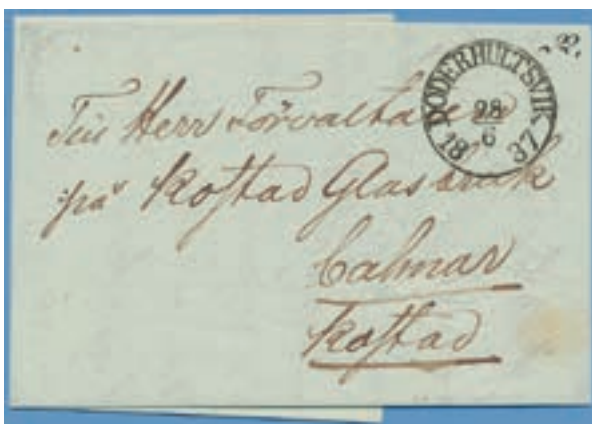 DÖDERHULTSVIK
28
6
18 37
Till Herr Förvaltaren
på Kostad Glasbruk
Calmar
Kostad